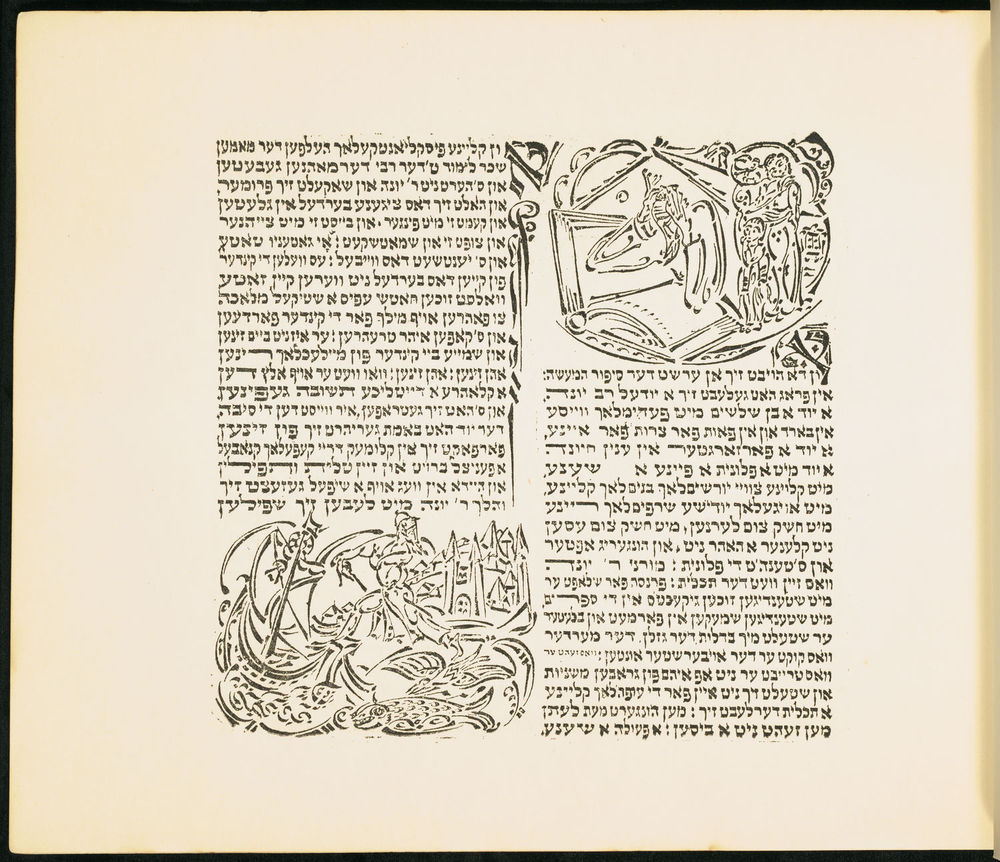 ון דא הויבט זיך אן ערשט דער סיפור המעשה:
אין פראג האט געלעבט זיך א יודעל רב יונה,
א יוד אבן שלשים מיט פעהימלאך ווייסע
אין בארד און אין פאות פאר צרות פאר איינע,
א יוד א פארזארגטער אין ענין חיונה
א יוד מיט א פלונית א פיינע א שענע,
מיט קליינע צוויי יורשים׳לאך בנים׳לאך קליינע,
מיט אויגעלאך יודישע שרפים׳לאך ריינע
מיט חשק צום לערנען, מיט חשק צום עסען
ניט קלענער א האהר ניט, און הונגעריג אפטער
און ס׳טענה׳ט די פלונית: מורני ר׳ יונה
וואס זיין וועט דער תכלית: פרנסה פאר שלאפט ער
מיט שטענדיגען זוכען גיקעכטס אין די ספרים
מיט שטענדיגען שמעקען אין פארמעט און
ער שטעלט מיך בדלות, דער גזלן, דער מערדער
וואס קוקט ער דער אויבערשטער אונטען: וואס זעהט ער
וואס טרייבט ער ניט אפ איהם פון גראבען משניות
און שטעלט זיך ניט איין פאר די עופה׳לאך קליינע
א תכלית דערלעבט זיך: מען הונגערט מעת לעתן
מען זעהט ניט א ביסען: א פעולה א שיענע,
ון קליינע פיסקליאנטקעלאך העלפען דער מאמען
שכר לימוד ט׳דער רבי דערמאהנען געבעטען
און ס׳הערט ניט ר׳ יונה און שאקעלט זיך פרומער,
און האלט זיך דאס ציגענע בערדעל אין גלעטען
און קעמט זי מיט פינגער, און בייסט זי מיט צייהנער
און צופט זי און שמאטשקעט: אָי גאטעניו טאטע
און ס׳יענטשעט דאס ווייבעל: עס וועלען די קינדער
פון קייען דאס בערדעל ניט ווערען קיין זאטע
וואלסט זוכען חאטשי עפיס א שטיקעל מלאכה
צו פאהרען אויף מילך פאר די קינדער פארדינען
און ס׳קאפען איהר טרעהרען: ער איז ניט ביים זינען
און שמייע ביי קינדער פון מיילעכלאך רינען
אהן זינען: אהן זינען: וואו וועט ער אויף אלץ דען
א קלאהרע א דייטליכע תשובה געפינען,
און ס׳האט זיך געטראפען, איר ווייסט דען די סיבה,
דער יוד האט באמת גערירט זיך פון זינען,
פארפאקט זיך אין קלומעק דריי קעפעלאך קנאבעל
א פעניצל ברויט און זיין טלית ותפילין
און היידא אין וועג אויף א שיפעל געזעצט זיך
והלך ר׳ יונה מיט לעבען זיך שפילען